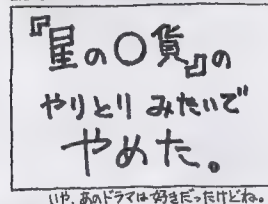 『星の○貨』の
やりとりみたいで
やめた。
いや、あのドラマは好きだったけどね。